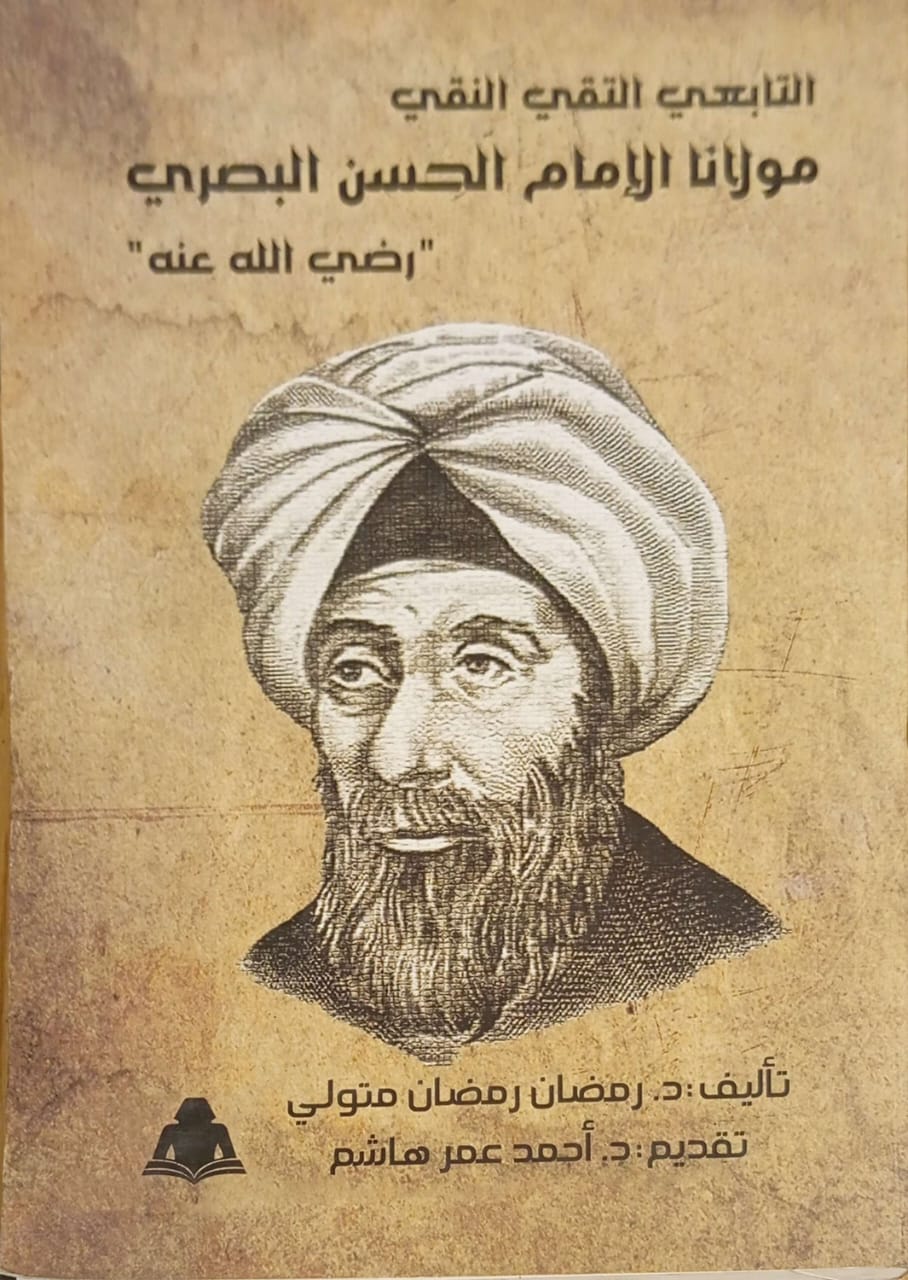 التابعي التقي النقي
مولانا الإمام الحسن البصري
"رضي الله عنه"
تأليف: د. رمضان رمضان متولي
تقديم: د. أحمد عمر هاشم